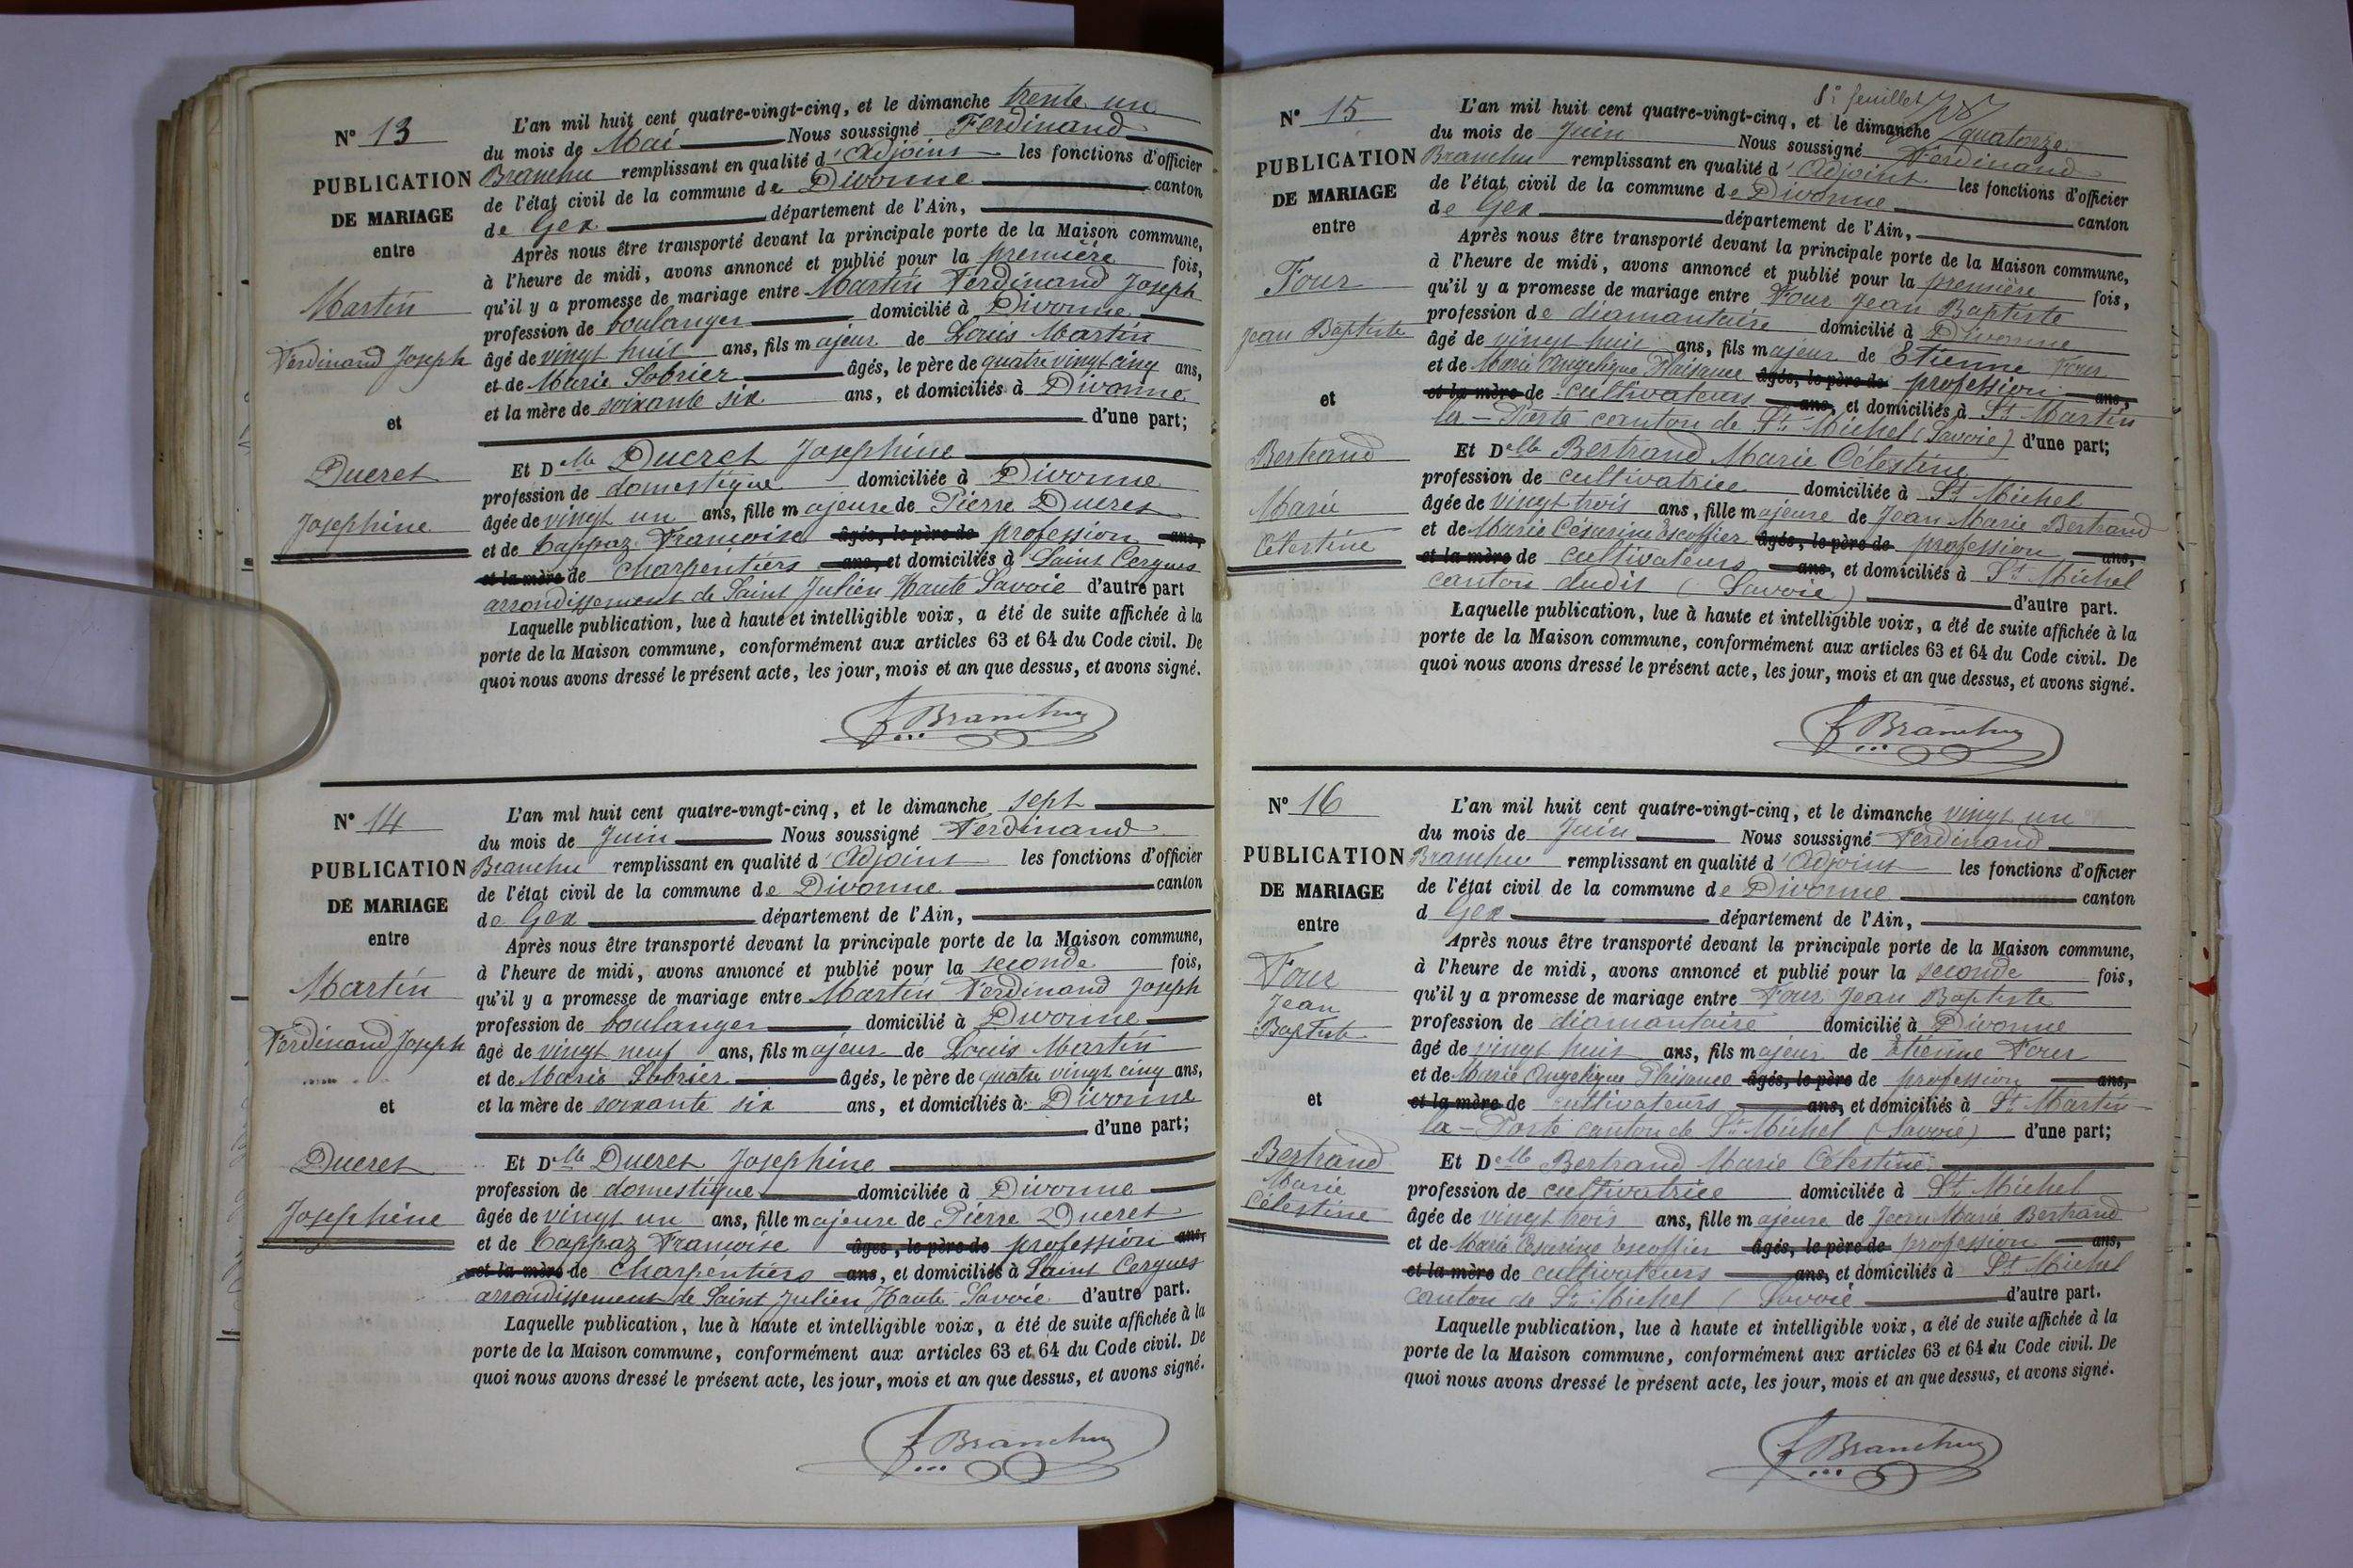 N° 13
PUBLICATION
DE MARIAGE
entre
Martin
Ferdinand Joseph
et
Ducret
Josephine
L'an mil huit cent quatre-vingt-cinq, et le dimanche trente un
du mois de Mai Nous soussigné Ferdinand
Branchu remplissant en qualité d'Adjoint les fonctions d'officier
de l'état civil de la commune de Divonne canton
de Gex département de l'Ain,
Après nous être transporté devant la principale porte de la Maison commune,
à l'heure de midi, avons annoncé et publié pour la première fois,
qu'il y a promesse de mariage entre Martin Ferdinand Joseph
profession de boulanger domicilié à Divonne
âgé de vingt huit ans, fils majeur de Louis Martin
et de Marie Sobrier âgés, le père de quatre vingt cinq ans,
et la mère de soixante six ans, et domiciliés à Divonne
d'une part;
Et Dlle Ducret Josephine
profession de domestique domiciliée à Divonne
âgée de vingt un ans, fille majeure de Pierre Ducret
et de Cappaz Françoise âgés, le père de profession ans,
et la mère de charpentiers ans, et domiciliés à Saint Cergues
arrondissement de Saint Julien Haute Savoie d'autre part
Laquelle publication, lue à haute et intelligible voix, a été de suite affichée à la
porte de la Maison commune, conformément aux articles 63 et 64 du Code civil. De
quoi nous avons dressé le présent acte, les jour, mois et an que dessus, et avons signé.
f Branchu
N° 14
PUBLICATION
DE MARIAGE
entre
Martin
Ferdinand Joseph
et
Ducret
Josephine
L'an mil huit cent quatre-vingt-cinq, et le dimanche sept
du mois de Juin Nous soussigné Ferdinand
Branchu remplissant en qualité d'Adjoint les fonctions d'officier
de l'état civil de la commune de Divonne canton
de Gex département de l'Ain,
Après nous être transporté devant la principale porte de la Maison commune,
à l'heure de midi, avons annoncé et publié pour la seconde fois,
qu'il y a promesse de mariage entre Martin Ferdinand Joseph
profession de boulanger domicilié à Divonne
âgé de vingt neuf ans, fils majeur de Louis Martin
et de Marie Sobrier âgés, le père de quatre vingt cinq ans,
et la mère de soixante six ans, et domiciliés à Divonne
d'une part;
Et Dlle Ducret Josephine
profession de domestique domiciliée à Divonne
âgée de vingt un ans, fille majeure de Pierre Ducret
et de Cappaz Françoise âgés, le père de profession ans,
et la mère de charpentiers ans, et domiciliés à Saint Cergues
arrondissement de Saint Julien Haute Savoie d'autre part.
Laquelle publication, lue à haute et intelligible voix, a été de suite affichée à la
porte de la Maison commune, conformément aux articles 63 et 64 du Code civil. De
quoi nous avons dressé le présent acte, les jour, mois et an que dessus, et avons signé.
f Branchu
feuillet
N° 15
PUBLICATION
DE MARIAGE
entre
Four
Jean Baptiste
et
Bertrand
Marie
Célestine
L'an mil huit cent quatre-vingt-cinq, et le dimanche quatorze
du mois de Juin Nous soussigné Ferdinand
Branchu remplissant en qualité d'Adjoint les fonctions d'officier
de l'état civil de la commune de Divonne canton
de Gex département de l'Ain,
Après nous être transporté devant la principale porte de la Maison commune,
à l'heure de midi, avons annoncé et publié pour la première fois,
qu'il y a promesse de mariage entre Four Jean Baptiste
profession de diamantaire domicilié à Divonne
âgé de vingt huit ans, fils majeur de Etienne Four
et de Marie Angelique Plaisance âgés, le père de profession ans,
et la mère de cultivateurs ans, et domiciliés à St Martin
la-Porte canton de St Michel (Savoie) d'une part;
Et Delle Bertrand Marie Célestine
profession de cultivatrice domiciliée à St Michel
âgée de vingt trois ans, fille majeure de Jean Marie Bertrand
et de Marie Césarine Escoffier âgés, le père de profession ans,
et la mère de cultivateurs ans, et domiciliés à St Michel
canton dudit (Savoie) d'autre part.
Laquelle publication, lue à haute et intelligible voix, a été de suite affichée à la
porte de la Maison commune, conformément aux articles 63 et 64 du Code civil. De
quoi nous avons dressé le présent acte, les jour, mois et an que dessus, et avons signé.
f Branchu
N° 16
PUBLICATION
DE MARIAGE
entre
Four
Jean
Baptiste
et
Bertrand
Marie
Célestine
L'an mil huit cent quatre-vingt-cinq, et le dimanche vingt un
du mois de Juin Nous soussigné Ferdinand
Branchu remplissant en qualité d'Adjoint les fonctions d'officier
de l'état civil de la commune de Divonne canton
d Gex département de l'Ain,
Après nous être transporté devant la principale porte de la Maison commune,
à l'heure de midi, avons annoncé et publié pour la seconde fois,
qu'il y a promesse de mariage entre Four Jean Baptiste
profession de diamantaire domicilié à Divonne
âgé de vingt huit ans, fils majeur de Etienne Four
et de Marie Angelique Plaisance âgés, le père de profession ans,
et la mère de cultivateurs ans, et domiciliés à St Martin-
la-Porte canton de St Michel (Savoie) d'une part;
Et Delle Bertrand Marie Célestine
profession de cultivatrice domiciliée à St Michel
âgée de vingt trois ans, fille majeure de Jean Marie Bertrand
et de Marie Césarine Escoffier âgés, le père de profession ans,
et la mère de cultivateurs ans, et domiciliés à St Michel
canton de St Michel (Savoie d'autre part.
Laquelle publication, lue à haute et intelligible voix, a été de suite affichée à la
porte de la Maison commune, conformément aux articles 63 et 64 du Code civil. De
quoi nous avons dressé le présent acte, les jour, mois et an que dessus, et avons signé.
f Branchu